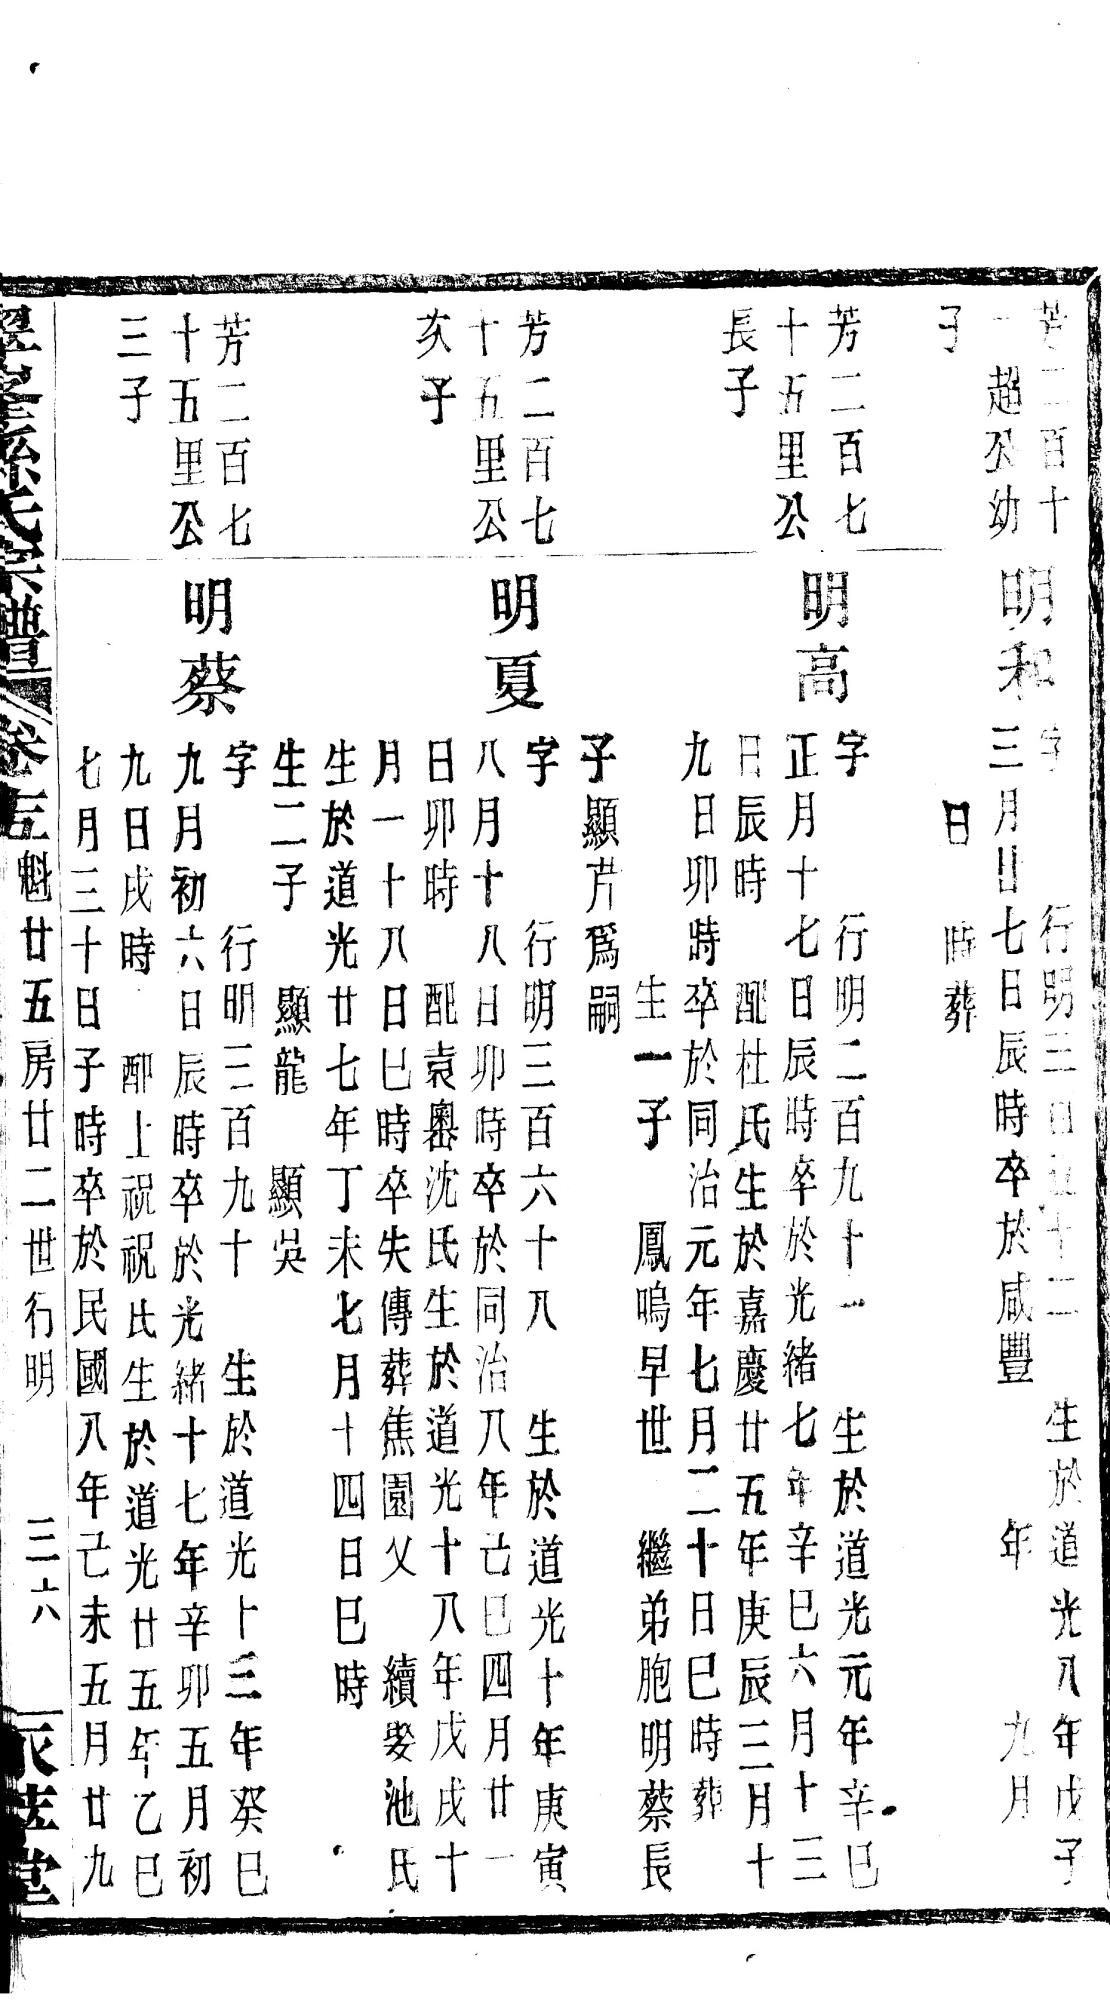 芳二百十
一超公幼
子
明和
字　行明三百五十二　生於道光八年戊子
三月廿七日辰時卒於咸豐　年　九月
日　時葬
芳二百七
十五里公
長子
明高
字　行明二百九十一　生於道光元年辛巳
正月十七日辰時卒於光緒七年辛巳六月十三
日辰時　配杜氏生於嘉慶廿五年庚辰三月十
九日卯時卒於同治元年七月二十日巳時葬
生一子　鳳鳴早世　繼弟胞明蔡長
子顯芹爲嗣
芳二百七
十五里公
次子
明夏
字　行明三百六十八　生於道光十年庚寅
八月十八日卯時卒於同治八年己巳四月廿一
日卯時　配袁嶴沈氏生於道光十八年戊戌十
月一十八日巳時卒失傳葬焦園父　續娶池氏
生於道光廿七年丁未七月十四日巳時
生二子　顯龍　顯吳
芳二百七
十五里公
三子
明蔡
字　行明三百九十　生於道光十三年癸巳
九月初六日辰時卒於光緒十七年辛卯五月初
九日戌時　配上祝祝氏生於道光廿五年乙巳
七月三十日子時卒於民國八年己未五月廿九
孫氏宗譜　卷　魁廿五房廿二世行明　三六　堂